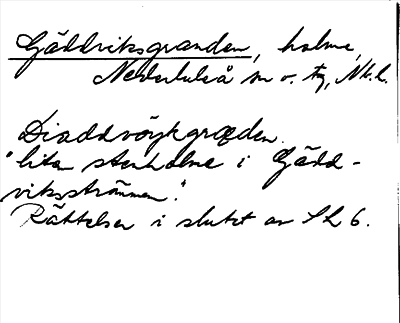 Gäddviksgranden, holme,
Nederluleå sn o. tg, Nb.l.
Diaddvöykgræden.
"liten stenholme i Gädd-
viksströmmen."
Rättelser i slutet av SL 6.